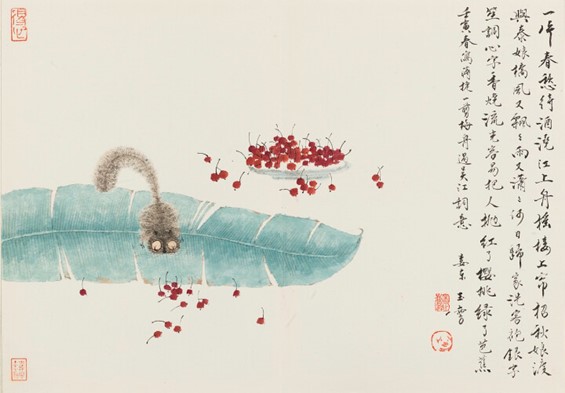 一片春愁待酒澆江上舟搖樓上帘招秋娘渡
與泰娘橋風又飄々雨又瀟々何日歸家洗客袍銀字
笙調心字香燒流光容易把人拋紅了櫻桃綠了芭蕉
壬寅春寫蔣捷一剪梅舟過吳江詞意 婁東